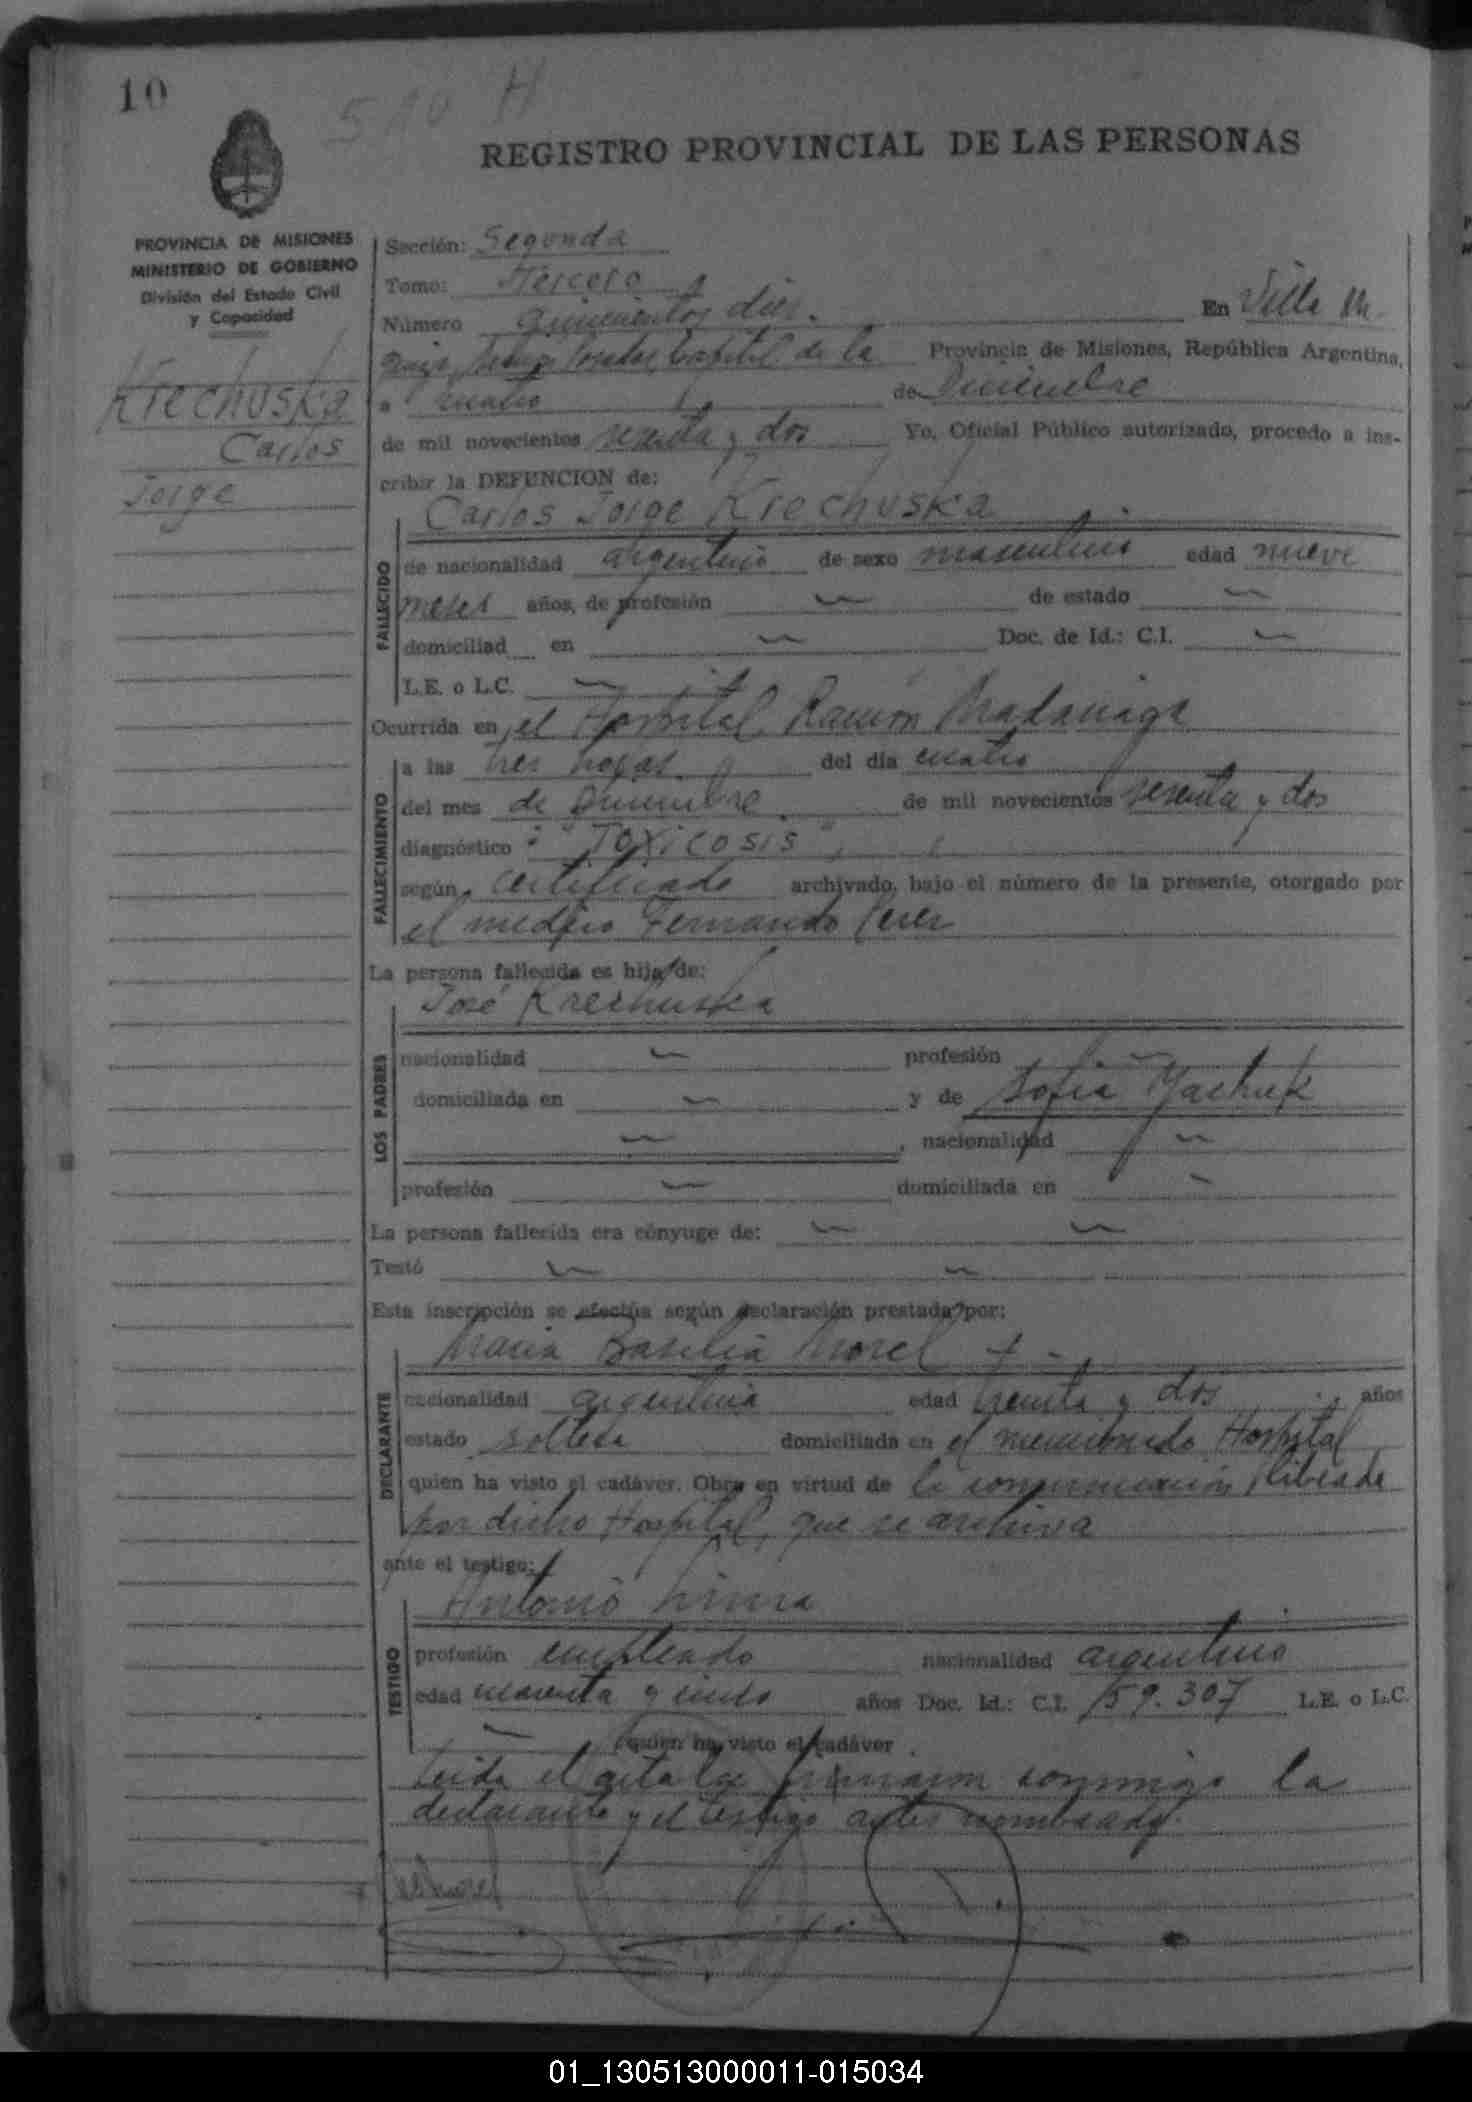 10
510 H
REGISTRO PROVINCIAL DE LAS PERSONAS
PROVINCIA DE MISIONES
MINISTERIO DE GOBIERNO
División del Estado Civil
y Capacidad
Krechuska
Carlos
Jorge
Sección: Segunda
Tomo: Tercero
Número quinientos diez. En Villa
Posadas Capital de la Provincia de Misiones, República Argentina,
a cuatro de Diciembre
de mil novecientos sesenta y dos Yo, Oficial Público autorizado, procedo a ins-
cribir la DEFUNCION de:
Carlos Jorge Krechuska
FALLECIDO
de nacionalidad argentino de sexo masculino edad nueve
meses años, de profesión — de estado —
domiciliad en — Doc. de Id.: C.I. —
L.E. o L.C. —
Ocurrida en el Hospital Ramón Madariaga
FALLECIMIENTO
a las tres horas del día cuatro
del mes de Diciembre de mil novecientos sesenta y dos
diagnóstico: "Toxicosis",
según certificado archivado, bajo el número de la presente, otorgado por
el medico Fernando Perez
La persona fallecida es hija de:
LOS PADRES
José Krechuska
nacionalidad — profesión —
domiciliada en — y de Sofia Yachuk
— , nacionalidad —
profesión — domiciliada en —
La persona fallecida era cónyuge de: — —
Testó — —
Esta inscripción se efectúa según declaración prestada por:
DECLARANTE
Maria Basilia Morel
nacionalidad argentina edad treinta y dos años
estado soltera domiciliada en el mencionado Hospital
quien ha visto el cadáver. Obra en virtud de la comunicación librada
por dicho Hospital, que se archiva
ante el testigo:
TESTIGO
Antonio
profesión empleado nacionalidad argentino
edad cuarenta y cinco años Doc. Id.: C.I. 159.307 L.E. o L.C.
— quien ha visto el cadáver.
Leida el acta la firmaron conmigo la
declarante y el testigo antes nombrado.
01_130513000011-015034